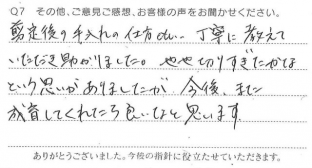 Q7 その他、ご意見ご感想、お客様の声をお聞かせください。
剪定後の手入れの仕方etc… 丁寧に教えて
いただき助かりました。也也切りすぎたかな
という思いがありましたが 今後、また
成育してくれたら良いなと思います
ありがとうございました。今後の指針に役立たせていただきます。